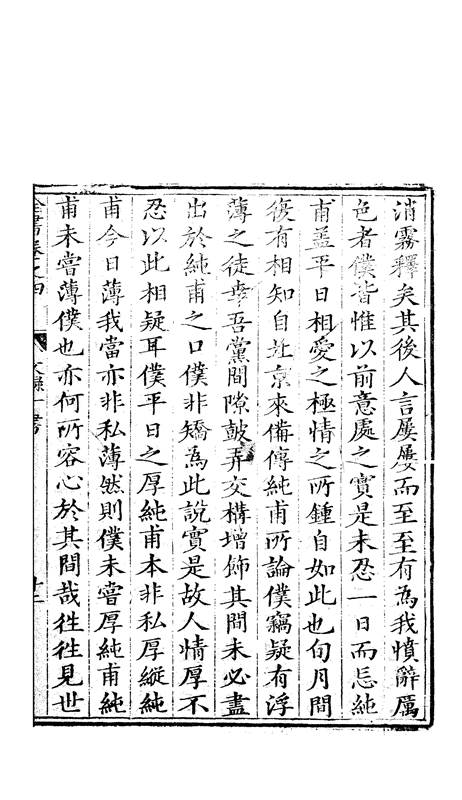 消霧釋矣其後人言屢屢而至至有為我憤辭厲
色者僕皆惟以前意處之實是未忍一日而忘純
甫蓋平日相愛之極情之所鍾自如此也旬月間
復有相知自北京來備傳純甫所論僕竊疑有浮
薄之徒幸吾黨間隙鼓弄交構增飾其間未必盡
出於純甫之口僕非矯為此說實是故人情厚不
忍以此相疑耳僕平日之厚純甫本非私厚縱純
甫今日薄我當亦非私薄然則僕未嘗厚純甫純
甫未嘗薄僕也亦何所容心於其間哉徃徃見世
全書卷之四 文錄一書 十二